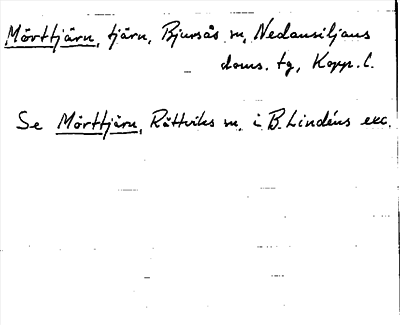 Mörttjärn, tjärn, Bjursås sn, Nedansiljans
doms. tg, Kopp. l.
Se Mörttjärn, Rättviks sn, i B. Lindéns exc.